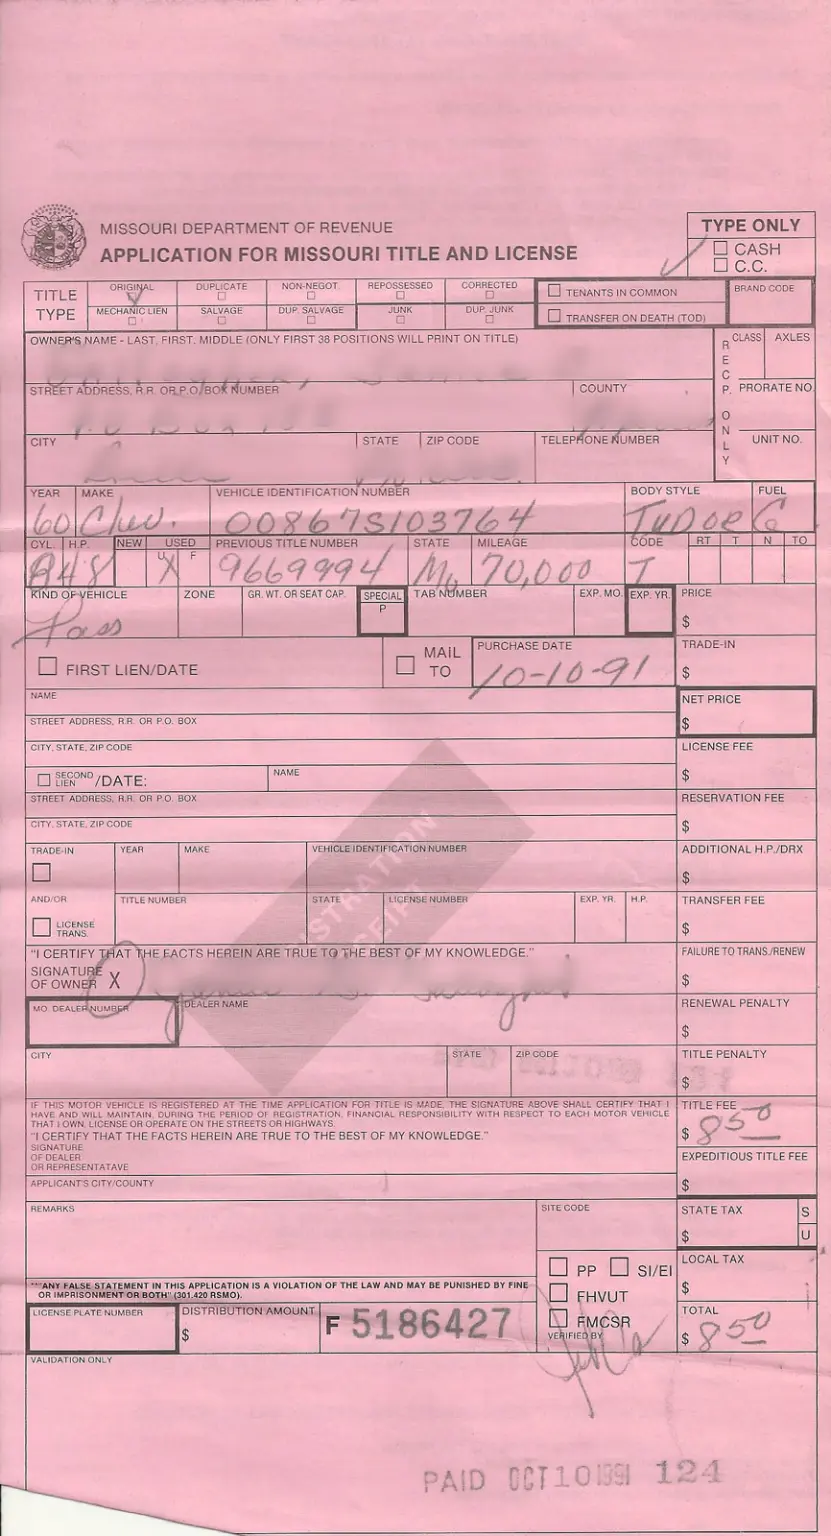 MISSOURI DEPARTMENT OF REVENUE
APPLICATION FOR MISSOURI TITLE AND LICENSE
TYPE ONLY
CASH
C.C.
TITLE TYPE
ORIGINAL DUPLICATE NON-NEGOT. REPOSSESSED CORRECTED
MECHANIC LIEN SALVAGE DUP. SALVAGE JUNK DUP. JUNK
TENANTS IN COMMON
TRANSFER ON DEATH (TOD)
BRAND CODE
OWNER'S NAME - LAST, FIRST, MIDDLE (ONLY FIRST 38 POSITIONS WILL PRINT ON TITLE)
RECP. ONLY
CLASS AXLES
STREET ADDRESS, R.R. OR P.O. BOX NUMBER COUNTY PRORATE NO.
CITY STATE ZIP CODE TELEPHONE NUMBER UNIT NO.
YEAR MAKE VEHICLE IDENTIFICATION NUMBER BODY STYLE FUEL
60 Chev. 00867S103764 TuDoe G
CYL. H.P. NEW USED PREVIOUS TITLE NUMBER STATE MILEAGE CODE RT T N TO
U F
848 X 9669994 Mo 70,000 T
KIND OF VEHICLE ZONE GR. WT. OR SEAT CAP. SPECIAL TAB NUMBER EXP. MO. EXP. YR. PRICE
Pass P $
FIRST LIEN/DATE MAIL TO PURCHASE DATE TRADE-IN
10-10-91 $
NAME NET PRICE
STREET ADDRESS, R.R. OR P.O. BOX $
CITY, STATE, ZIP CODE LICENSE FEE
SECOND LIEN /DATE: NAME $
STREET ADDRESS, R.R. OR P.O. BOX RESERVATION FEE
CITY, STATE, ZIP CODE $
TRADE-IN YEAR MAKE VEHICLE IDENTIFICATION NUMBER ADDITIONAL H.P./DRX
$
AND/OR TITLE NUMBER STATE LICENSE NUMBER EXP. YR. H.P. TRANSFER FEE
LICENSE TRANS. $
"I CERTIFY THAT THE FACTS HEREIN ARE TRUE TO THE BEST OF MY KNOWLEDGE." FAILURE TO TRANS./RENEW
SIGNATURE OF OWNER X $
MO. DEALER NUMBER DEALER NAME RENEWAL PENALTY
$
CITY STATE ZIP CODE TITLE PENALTY
$
IF THIS MOTOR VEHICLE IS REGISTERED AT THE TIME APPLICATION FOR TITLE IS MADE, THE SIGNATURE ABOVE SHALL CERTIFY THAT I
HAVE AND WILL MAINTAIN, DURING THE PERIOD OF REGISTRATION, FINANCIAL RESPONSIBILITY WITH RESPECT TO EACH MOTOR VEHICLE
THAT I OWN, LICENSE OR OPERATE ON THE STREETS OR HIGHWAYS.
"I CERTIFY THAT THE FACTS HEREIN ARE TRUE TO THE BEST OF MY KNOWLEDGE."
TITLE FEE
$ 8 50
SIGNATURE
OF DEALER
OR REPRESENTATAVE
EXPEDITIOUS TITLE FEE
$
APPLICANT'S CITY/COUNTY
REMARKS SITE CODE STATE TAX S
$ U
PP SI/EI LOCAL TAX
FHVUT $
"ANY FALSE STATEMENT IN THIS APPLICATION IS A VIOLATION OF THE LAW AND MAY BE PUNISHED BY FINE
OR IMPRISONMENT OR BOTH" (301.420 RSMO).
LICENSE PLATE NUMBER DISTRIBUTION AMOUNT F 5186427 FMCSR TOTAL
$ VERIFIED BY $ 8 50
VALIDATION ONLY
PAID OCT 10 1991 124